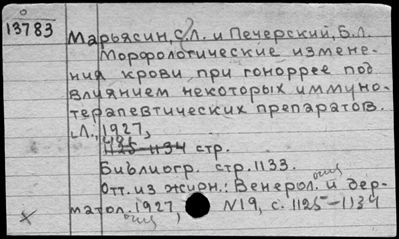 13783
Марьясин, С.Л. и Печерский, Б.Л.
Морфологические измене-
ния крови при гоноррее под
влиянием некоторых иммуно-
терапевтических препаратов.
Л., 1927,
1125-1134 стр.
Библиогр. стр. 1133.
Отт. из журн.: Венерол. и дер-
матол. 1927, N19, с. 1125-1134